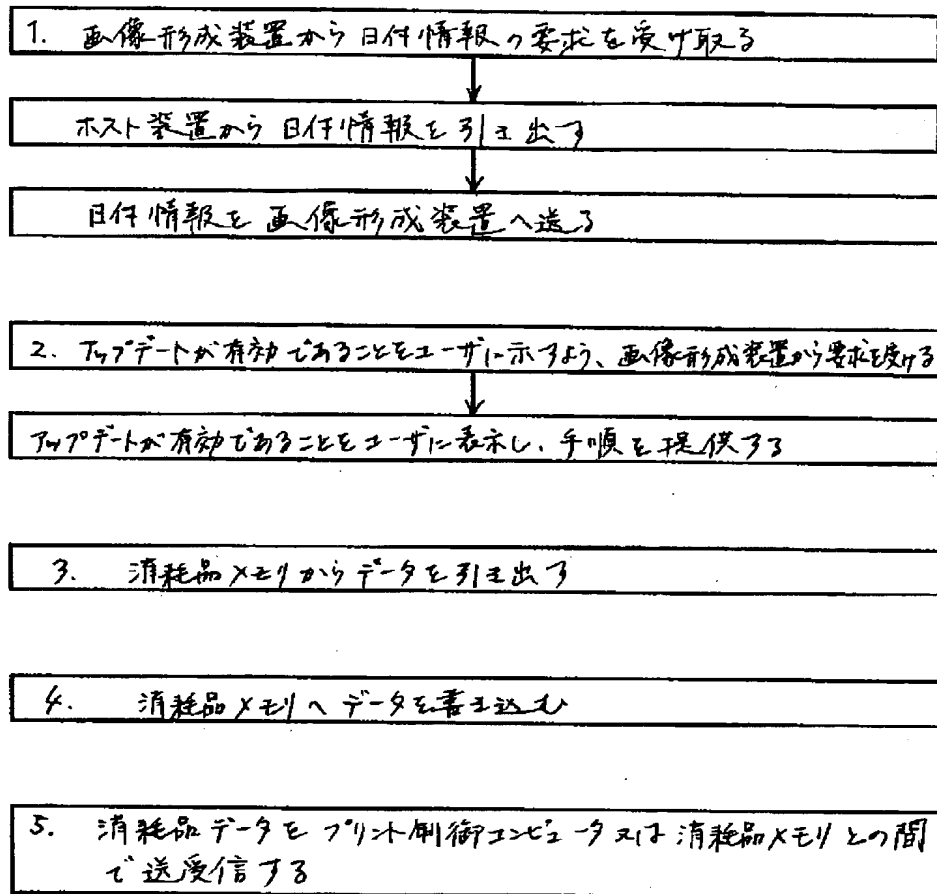 1. 画像形成装置から日付情報の要求を受け取る
ホスト装置から日付情報を引き出す
日付情報を画像形成装置へ送る
2. アップデートが有効であることをユーザに示すよう、画像形成装置から要求を受ける
アップデートが有効であることをユーザに表示し、手順を提供する
3. 消耗品メモリからデータを引き出す
4. 消耗品メモリへデータを書き込む
5. 消耗品データをプリント制御コンピュータ又は消耗品メモリとの間
で送受信する